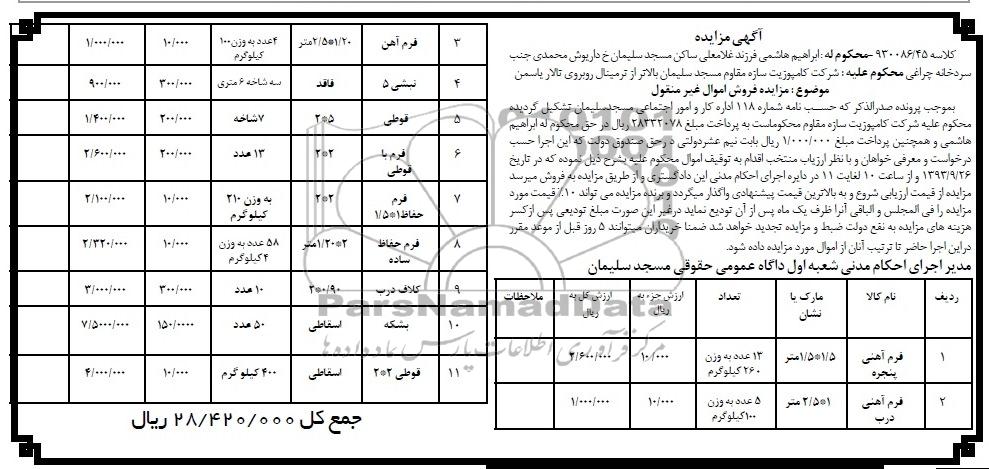 آگهی مزایده
کلاسه ۹۳۰۰۸۶/۴۵ -محکوم له :ابراهیم هاشمی فرزند غلامعلی ساکن مسجد سلیمان خ داریوش محمدی جنب
سردخانه چراغی محکوم علیه : شرکت کامپوزیت سازه مقاوم مسجد سلیمان بالاتر از ترمینال روبروی تالار یاسمن
موضوع : مزایده فروش اموال غیر منقول
بموجب پرونده صدرالذکر که حسب نامه شماره ۱۱۸ اداره کار و امور اجتماعی مسجدسلیمان تشکیل گردیده
محکوم علیه شرکت کامپوزیت سازه مقاوم محکوماست به پرداخت مبلغ ۲۸۳۳۲۰۷۸ ریال در حق محکوم له ابراهیم
هاشمی و همچنین پرداخت مبلغ ۱/۰۰۰/۰۰۰ ریال بابت نیم عشردولتی د رحق صندوق دولت که این اجرا حسب
درخواست و معرفی خواهان و با نظر ارزیاب منتخب اقدام به توقیف اموال محکوم علیه بشرح ذیل نموده که در تاریخ
۱۳۹۳/۹/۲۶ و از ساعت ۱۰ لغایت ۱۱ در دایره اجرای احکام مدنی این دادگستری و از طریق مزایده به فروش میرسد
مزایده از قیمت ارزیابی شروع و به بالاترین قیمت پیشنهادی واگذار میگردد و برنده مزایده می تواند ۱۰٪ قیمت مورد
مزایده را فی المجلس و الباقی آنرا ظرف یک ماه پس از آن تودیع نماید درغیر این صورت مبلغ تودیعی پس ازکسر
هزینه های مزایده به نفع دولت ضبط و مزایده تجدید خواهد شد ضمنا خریداران میتوانند ۵ روز قبل از موعد مقرر
دراین اجرا حاضر تا ترتیب آنان از اموال مورد مزایده داده شود.
مدیر اجرای احکام مدنی شعبه اول داگاه عمومی حقوقی مسجد سلیمان
ردیف نام کالا مارک یا نشان تعداد ارزش جزء به ریال ارزش کل به ریال ملاحظات
۱ فرم آهنی پنجره ۱/۵*۱/۵متر ۱۳ عدد به وزن ۲۶۰ کیلوگرم ۱۰/۰۰۰ ۲/۶۰۰/۰۰۰
۲ فرم آهنی درب ۱*۲/۵ متر ۵ عدد به وزن ۱۰۰کیلوگرم ۱۰/۰۰۰ ۱/۰۰۰/۰۰۰
۳ فرم آهن ۱/۲۰*۲/۵متر ۴عدد به وزن۱۰۰ کیلوگرم ۱۰/۰۰۰ ۱/۰۰۰/۰۰۰
۴ نبشی ۵ فاقد سه شاخه ۶ متری ۳۰۰/۰۰۰ ۹۰۰/۰۰۰
۵ قوطی ۵*۲ ۷شاخه ۲۰۰/۰۰۰ ۱/۴۰۰/۰۰۰
۶ فرم با قوطی ۲*۲ ۱۳ عدد ۲۰۰/۰۰۰ ۲/۶۰۰/۰۰۰
۷ فرم حفاظ۱*۱/۵ ۲*۲ به وزن ۲۱۰ کیلوگرم ۱۰/۰۰۰ ۲/۱۰۰/۰۰۰
۸ فرم حفاظ ساده ۲*۱/۲۰متر ۵۸ عدد به وزن ۴ کیلوگرم ۱۰/۰۰۰ ۲/۳۲۰/۰۰۰
۹ کلاف درب ۰/۹۰*۲ ۱۰ عدد ۳۰۰/۰۰۰ ۳/۰۰۰/۰۰۰
۱۰ بشکه اسقاطی ۵۰ عدد ۱۵۰/۰۰۰۰ ۷/۵۰۰۰/۰۰۰
۱۱ قوطی ۲*۲ اسقاطی ۴۰۰ کیلو گرم ۱۰/۰۰۰ ۴/۰۰۰/۰۰۰
جمع کل ۲۸/۴۲۰/۰۰۰ ریال
ParsNamadData
مرکز فرآوری اطلاعات پارس نماد داده ها